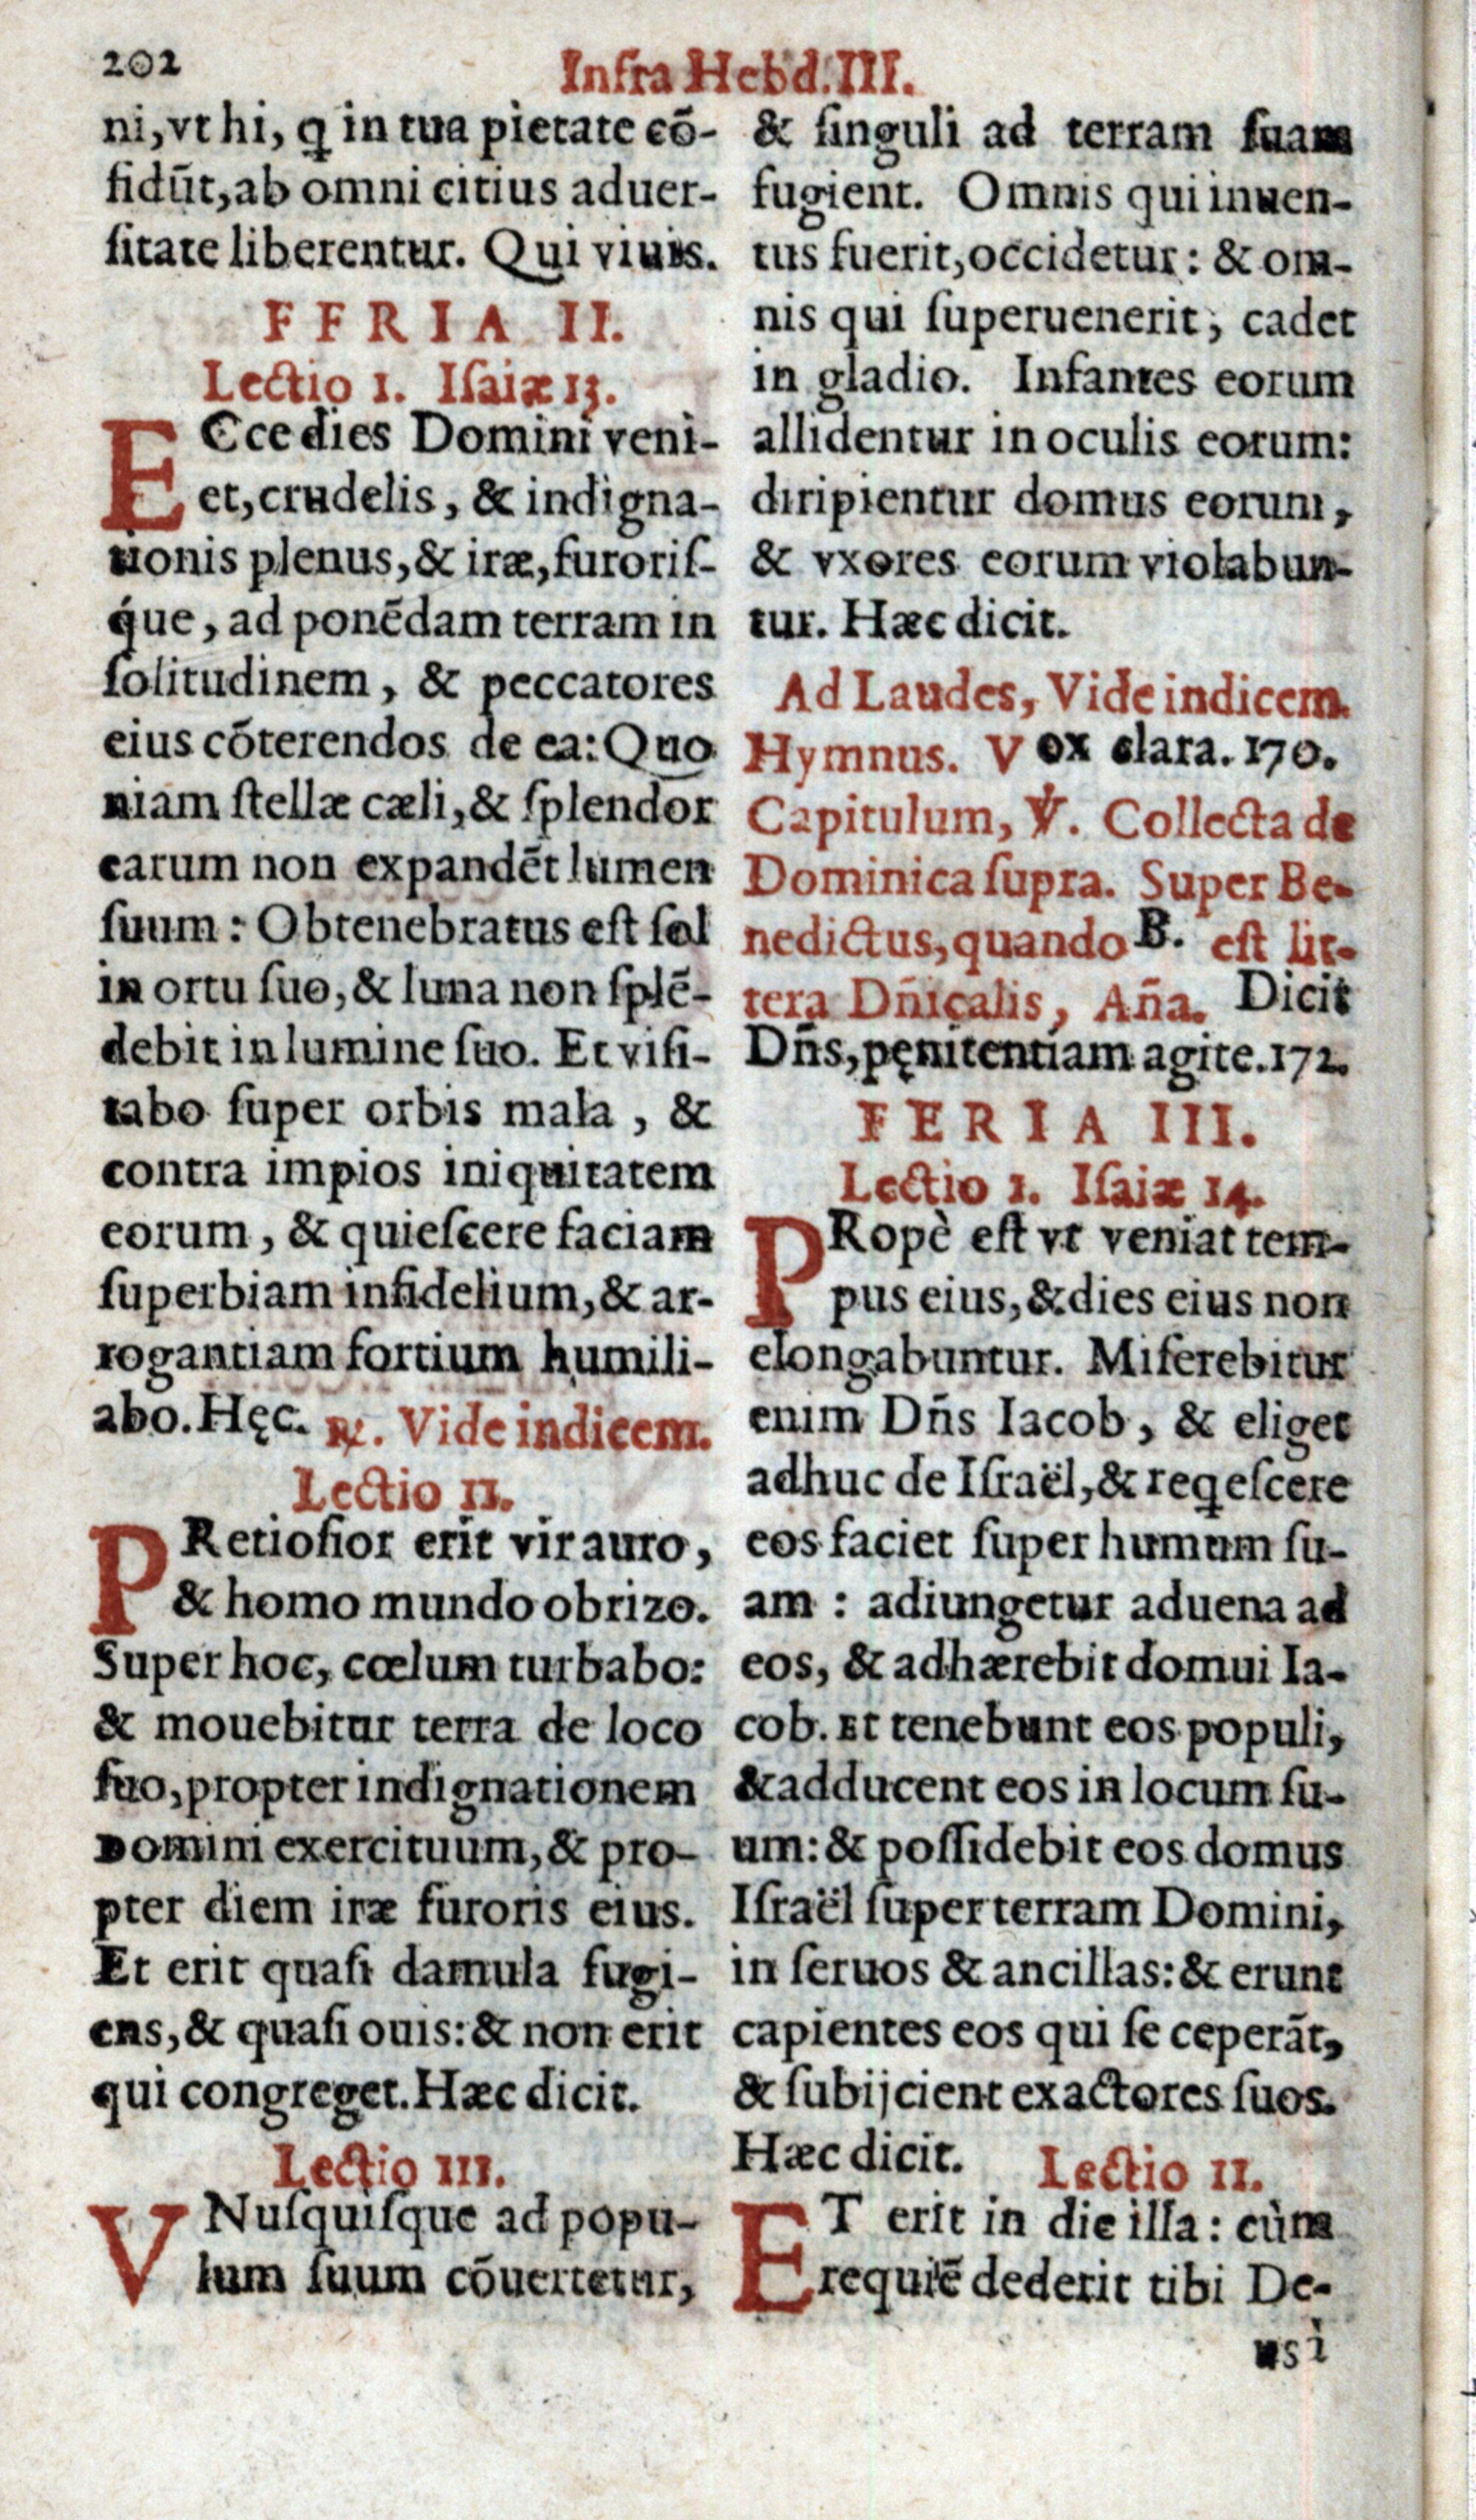 202
Infra Hebd. III.
ni, vt hi, ꝗ in tua pietate cõ-
fidũt, ab omni citius aduer-
ſitate liberentur. Qui viuis.
FFRIA II.
Lectio 1. Iſaiæ 13.
ECce dies Domini veni-
et, crudelis, & indigna-
tionis plenus, & iræ, furoriſ-
q́ue, ad ponẽdam terram in
ſolitudinem, & peccatores
eius cõterendos de ea: Quo
niam ſtellæ cæli, & ſplendor
earum non expandẽt lumen
ſuum: Obtenebratus eſt ſol
in ortu ſuo, & luna non ſplẽ-
debit in lumine ſuo. Et viſi-
tabo ſuper orbis mala, &
contra impios iniquitatem
eorum, & quieſcere faciam
ſuperbiam infidelium, & ar-
rogantiam fortium humili-
abo. Hęc. ℟. Vide indicem.
Lectio II.
PRetioſior erit vir auro,
& homo mundo obrizo.
Super hoc, cœlum turbabo:
& mouebitur terra de loco
ſuo, propter indignationem
Domini exercituum, & pro-
pter diem iræ furoris eius.
Et erit quaſi damula fugi-
ens, & quaſi ouis: & non erit
qui congreget. Hæc dicit.
Lectio III.
VNuſquiſque ad popu-
lum ſuum cõuertetur,
& ſinguli ad terram ſuam
fugient. Omnis qui inuen-
tus fuerit, occidetur: & om-
nis qui ſuperuenerit, cadet
in gladio. Infantes eorum
allidentur in oculis eorum:
diripientur domus eorum,
& vxores eorum violabun-
tur. Hæc dicit.
Ad Laudes, Vide indicem.
Hymnus. Vox clara. 170.
Capitulum, ℣. Collecta de
Dominica ſupra. Super Be-
nedictus, quando B. eſt lit-
tera Dñicalis, Aña. Dicit
Dñs, pęnitentiam agite. 172.
FERIA III.
Lectio 1. Iſaiæ 14.
PRopè eſt vt veniat tem-
pus eius, & dies eius non
elongabuntur. Miſerebitur
enim Dñs Iacob, & eliget
adhuc de Iſraël, & reꝗeſcere
eos faciet ſuper humum ſu-
am: adiungetur aduena ad
eos, & adhærebit domui Ia-
cob. Et tenebunt eos populi,
& adducent eos in locum ſu-
um: & poſſidebit eos domus
Iſraël ſuper terram Domini,
in ſeruos & ancillas: & erunt
capientes eos qui ſe ceperãt,
& ſubijcient exactores ſuos.
Hæc dicit. Lectio II.
ET erit in die illa: cùm
requiẽ dederit tibi De-
us ì